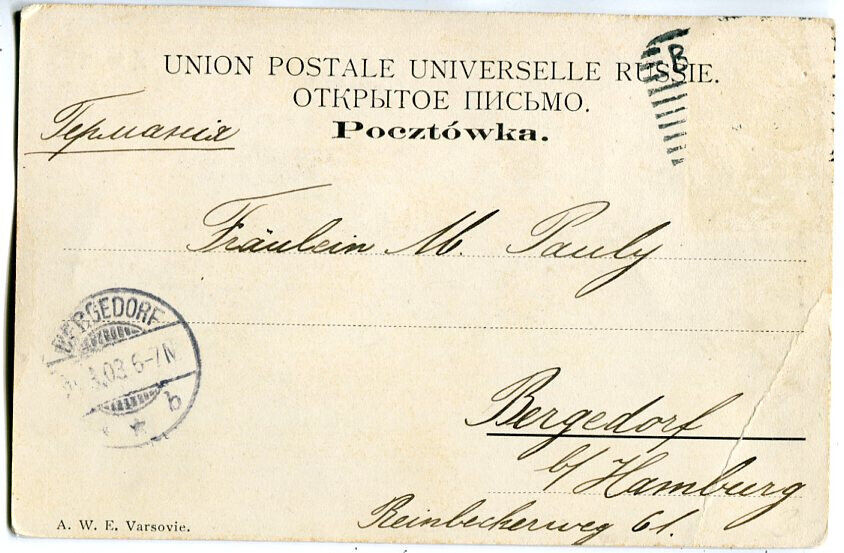 UNION POSTALE UNIVERSELLE RUSSIE.
ОТКРЫТОЕ ПИСЬМО.
Pocztówka.
Германія
B
Fräulein M. Pauly
BERGEDORF
.03 6-7N
b
Bergedorf
b/ Hamburg
Reinbeckerweg 61.
A. W. E. Varsovie.